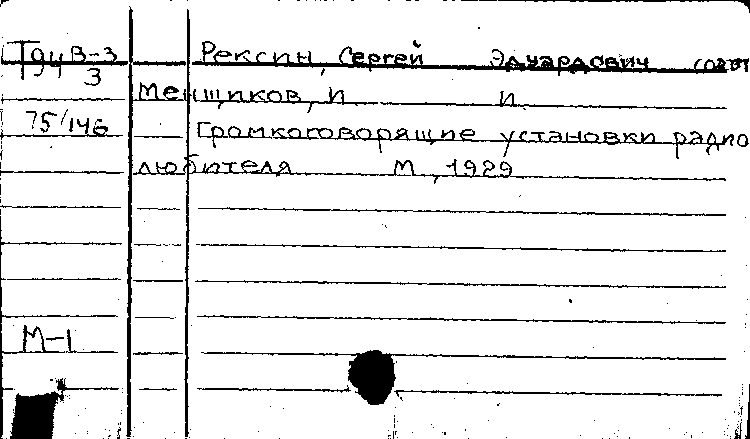 Т94 В-3 Рексин, Сергей Эдуардович
3
Менщиков, И. И.
75/146 Громкоговорящие установки радио
любителя М., 1929
М-1